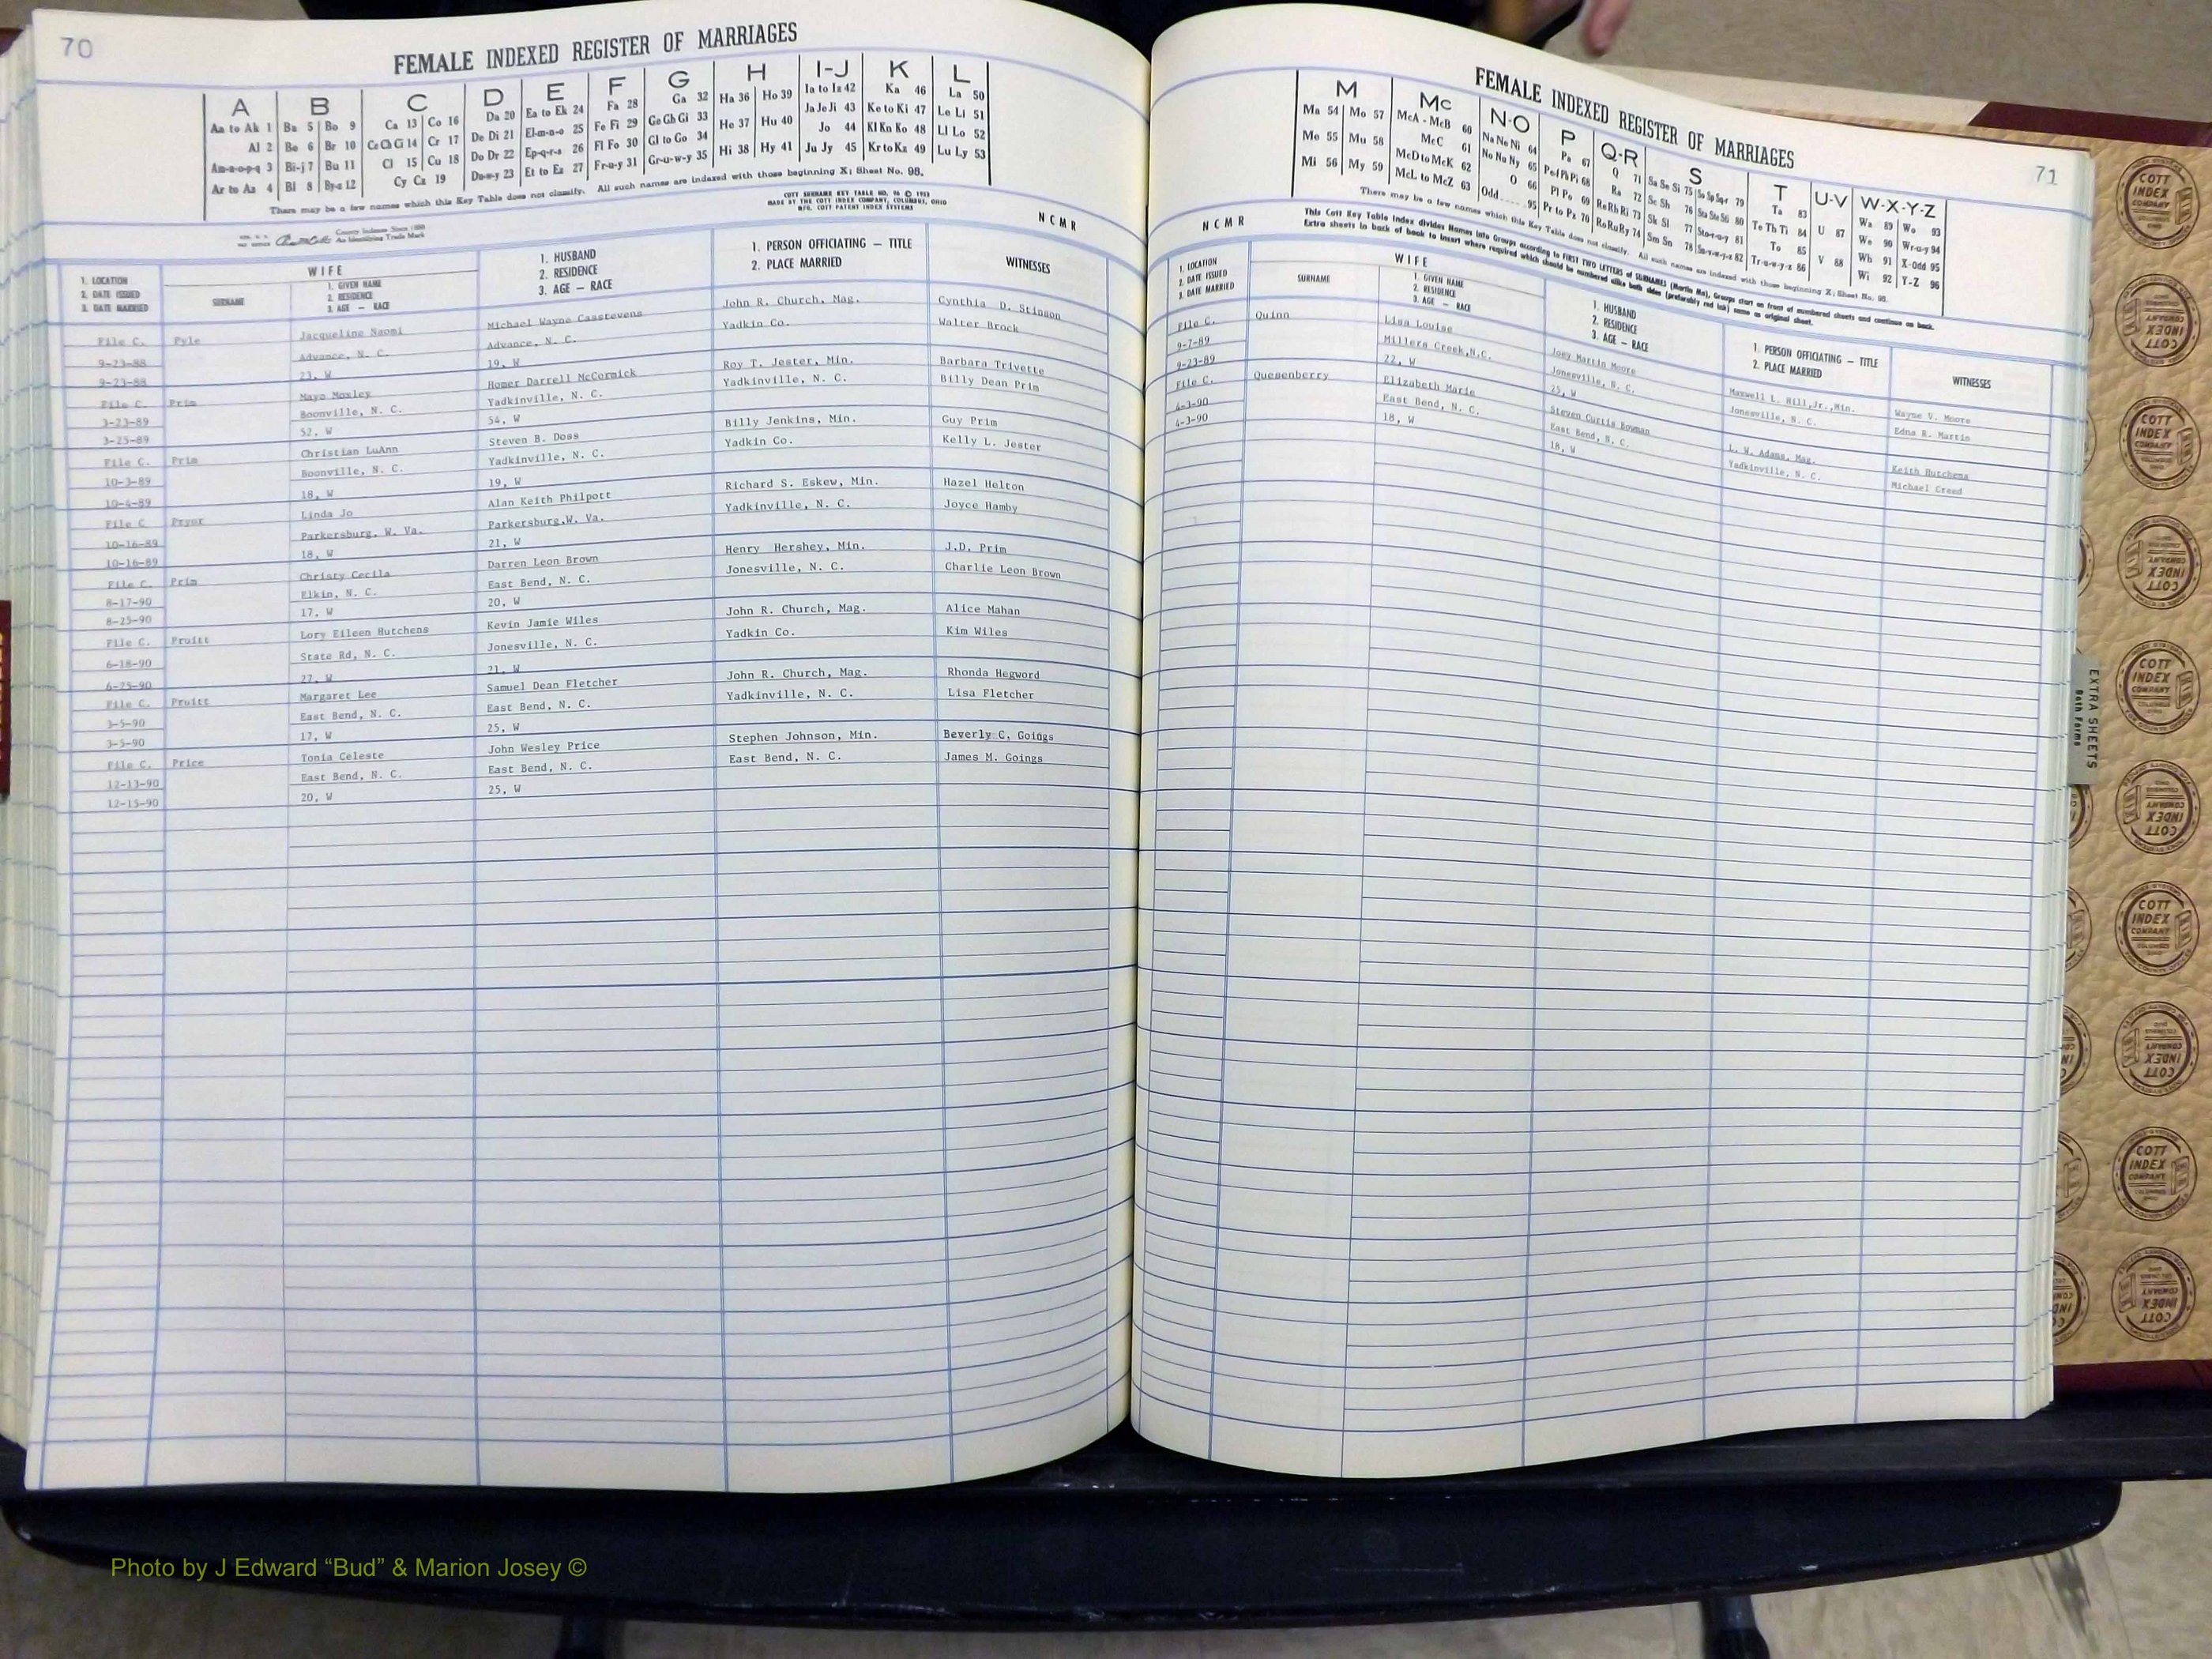 70
FEMALE INDEXED REGISTER OF MARRIAGES
A B C D E F G H I-J K L
Aa to Ak 1 Ba 5 Bo 9 Ca 13 Co 16 Da 20 Ea to Ek 24 Fa 28 Ga 32 Ha 36 Ho 39 Ia to Iz 42 Ka 46 La 50
Al 2 Be 6 Br 10 Ce Ch Ci 14 Cr 17 De Di 21 El-m-n-o 25 Fe Fi 29 Ge Gh Gi 33 He 37 Hu 40 Ja Je Ji 43 Ke to Ki 47 Le Li 51
Am-n-o-p-q 3 Bi-j 7 Bu 11 Cl 15 Cu 18 Do Dr 22 Ep-q-r-s 26 Fl Fo 30 Gl to Go 34 Hi 38 Hy 41 Jo 44 Kl Kn Ko 48 Ll Lo 52
Ar to Az 4 Bl 8 By-z 12 Cy Cz 19 Du-w-y 23 Et to Ez 27 Fr-u-y 31 Gr-u-w-y 35 Ju Jy 45 Kr to Kz 49 Lu Ly 53
There may be a few names which this Key Table does not classify. All such names are indexed with those beginning X; Sheet No. 98.
COTT SURNAME KEY TABLE NO. 96 ©
MADE BY THE COTT INDEX COMPANY, COLUMBUS, OHIO
MFG. COTT PATENT INDEX SYSTEMS
County Indexes Since 1888
An Identifying Trade Mark
NCMR
1. LOCATION
2. DATE ISSUED
3. DATE MARRIED
WIFE
SURNAME
1. GIVEN NAME
2. RESIDENCE
3. AGE — RACE
1. HUSBAND
2. RESIDENCE
3. AGE — RACE
1. PERSON OFFICIATING — TITLE
2. PLACE MARRIED
WITNESSES
File C. Pyle Jacqueline Naomi Michael Wayne Casstevens John R. Church, Mag. Cynthia D. Stinson
9-23-88 Advance, N. C. Advance, N. C. Yadkin Co. Walter Brock
9-23-88 23, W 19, W
File C. Prim Mayo Moxley Homer Darrell McCormick Roy T. Jester, Min. Barbara Trivette
3-23-89 Boonville, N. C. Yadkinville, N. C. Yadkinville, N. C. Billy Dean Prim
3-25-89 52, W 54, W
File C. Prim Christian LuAnn Steven B. Doss Billy Jenkins, Min. Guy Prim
10-3-89 Boonville, N. C. Yadkinville, N. C. Yadkin Co. Kelly L. Jester
10-4-89 18, W 19, W
File C Pryor Linda Jo Alan Keith Philpott Richard S. Eskew, Min. Hazel Helton
10-16-89 Parkersburg, W. Va. Parkersburg,W. Va. Yadkinville, N. C. Joyce Hamby
10-16-89 18, W 21, W
File C. Prim Christy Cecila Darren Leon Brown Henry Hershey, Min. J.D. Prim
8-17-90 Elkin, N. C. East Bend, N. C. Jonesville, N. C. Charlie Leon Brown
8-25-90 17, W 20, W
File C. Pruitt Lory Eileen Hutchens Kevin Jamie Wiles John R. Church, Mag. Alice Mahan
6-18-90 State Rd, N. C. Jonesville, N. C. Yadkin Co. Kim Wiles
6-25-90 22, W 21, W
File C. Pruitt Margaret Lee Samuel Dean Fletcher John R. Church, Mag. Rhonda Hegword
3-5-90 East Bend, N. C. East Bend, N. C. Yadkinville, N. C. Lisa Fletcher
3-5-90 17, W 25, W
File C. Price Tonia Celeste John Wesley Price Stephen Johnson, Min. Beverly C. Goings
12-13-90 East Bend, N. C. East Bend, N. C. East Bend, N. C. James M. Goings
12-15-90 20, W 25, W
FEMALE INDEXED REGISTER OF MARRIAGES
71
M Mc N-O P Q-R S T U-V W-X-Y-Z
Ma 54 Mo 57 McA - McB 60 Na Ne Ni 64 Pa 67 Q 71 Sa Se Si 75 Sn Sp Sq-r 79 Ta 83 U 87 Wa 89 Wo 93
Me 55 Mu 58 McC 61 No Nu Ny 65 Pe-f Ph Pi 68 Ra 72 Sc Sh 76 Sta Ste Sti 80 Te Th Ti 84 V 88 We 90 Wr-u-y 94
Mi 56 My 59 McD to McK 62 O 66 Pl Po 69 Re Rh Ri 73 Sk Sl 77 Sto-r-u-y 81 To 85 Wh 91 X-Odd 95
McL to McZ 63 Odd 95 Pr to Pz 70 Ro Ru Ry 74 Sm Sn 78 Su-v-w-y-z 82 Tr-u-w-y-z 86 Wi 92 Y-Z 96
There may be a few names which this Key Table does not classify. All such names are indexed with those beginning X; Sheet No. 98.
This Cott Key Table Index divides Names into Groups according to FIRST TWO LETTERS of SURNAMES (Martin Ma), Groups start on front of numbered sheets and continue on back.
Extra sheets in back of book to insert where required which should be numbered alike both sides (preferably red ink) same as original sheet.
NCMR
1. LOCATION
2. DATE ISSUED
3. DATE MARRIED
WIFE
SURNAME
1. GIVEN NAME
2. RESIDENCE
3. AGE — RACE
1. HUSBAND
2. RESIDENCE
3. AGE — RACE
1. PERSON OFFICIATING — TITLE
2. PLACE MARRIED
WITNESSES
File C. Quinn Lisa Louise Joey Martin Moore Maxwell L. Hill,Jr.,Min. Wayne V. Moore
9-7-89 Millers Creek,N.C. Jonesville, N. C. Jonesville, N. C. Edna R. Martin
9-23-89 22, W 25, W
File C. Quesenberry Elizabeth Marie Steven Curtis Bowman L. W. Adams, Mag. Keith Hutchens
4-3-90 East Bend, N. C. East Bend, N. C. Yadkinville, N. C. Michael Creed
4-3-90 18, W 18, W
EXTRA SHEETS
Both Forms
COTT INDEX COMPANY
Photo by J Edward “Bud” & Marion Josey ©